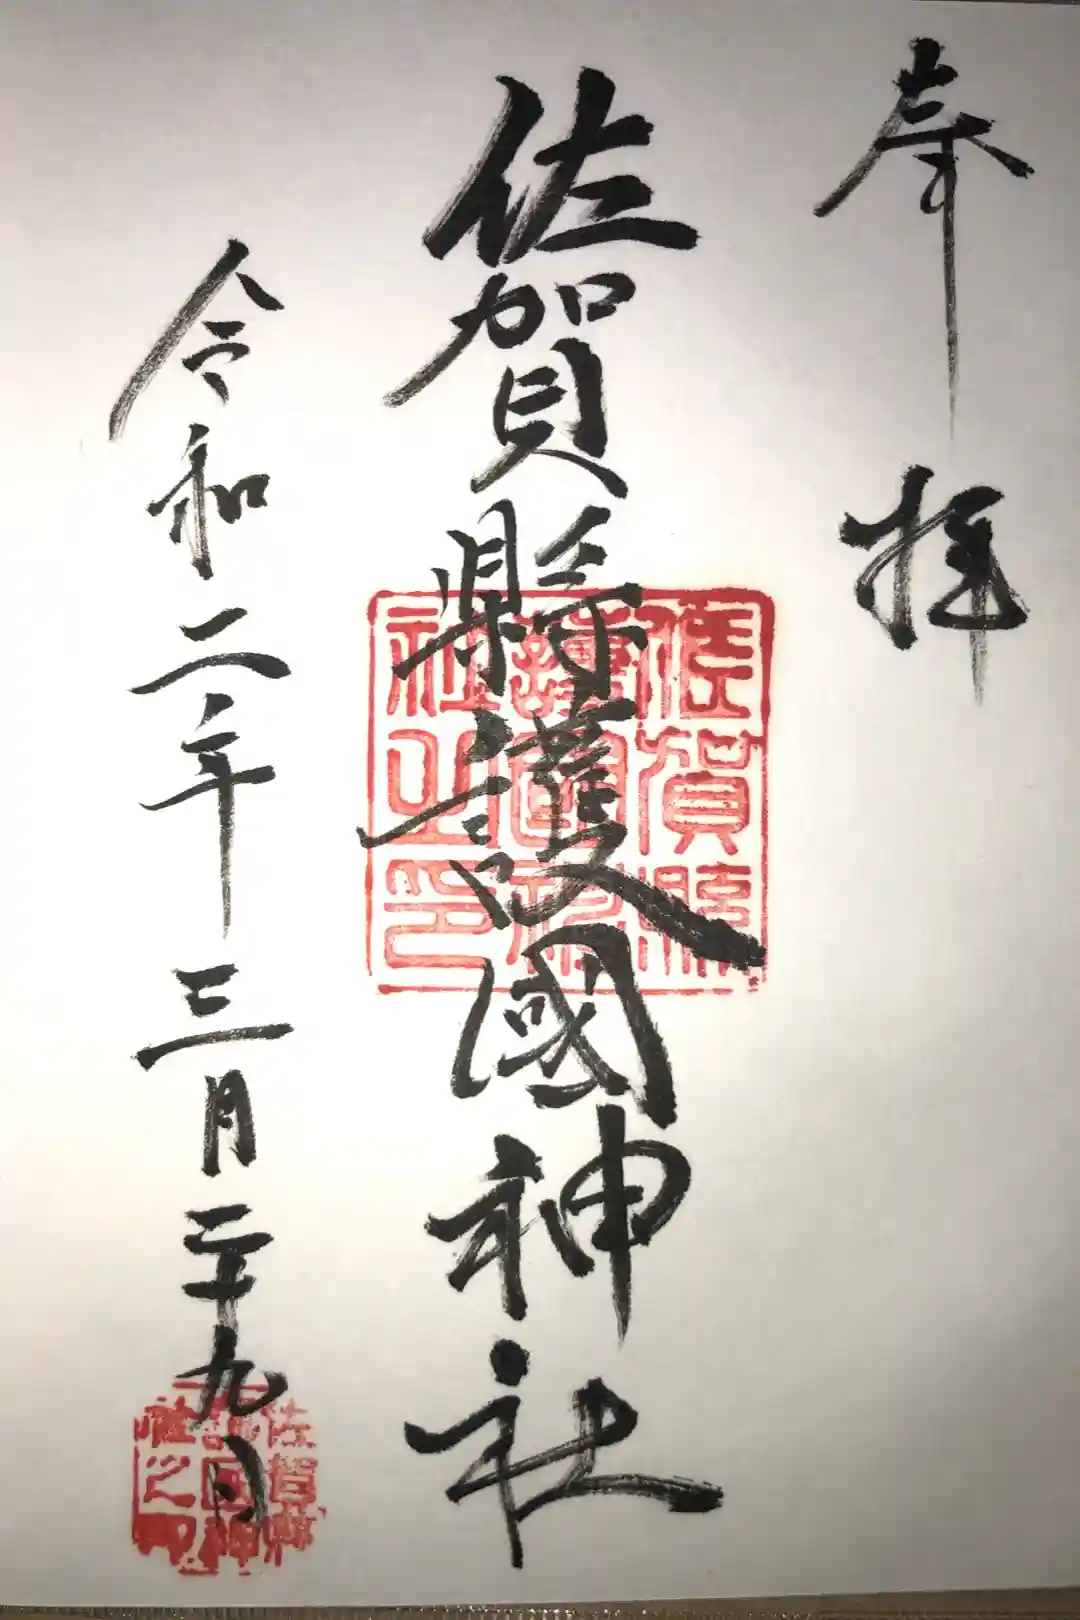 奉拝
佐賀縣護國神社
佐賀縣
護國神
社之印
令和二年三月二十九日
佐賀縣
護国神
社之印